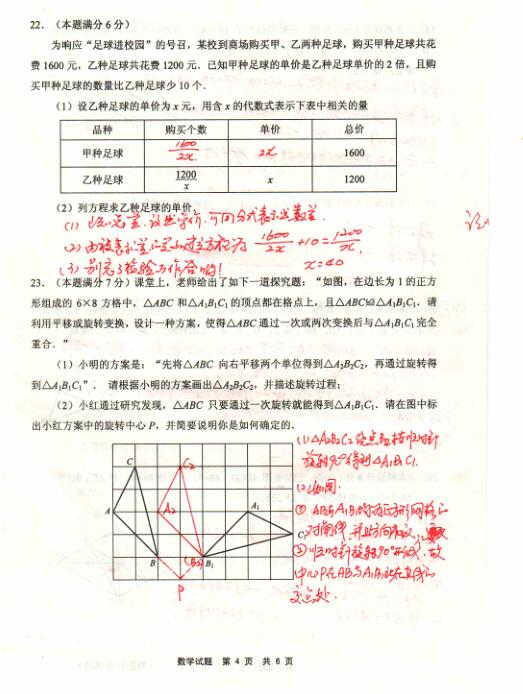 22．（本题满分6分）
为响应“足球进校园”的号召，某校到商场购买甲、乙两种足球，购买甲种足球共花
费1600元，乙种足球共花费1200元．已知甲种足球的单价是乙种足球单价的2倍，且购
买甲种足球的数量比乙种足球少10个．
（1）设乙种足球的单价为x元，用含x的代数式表示下表中相关的量
品种 购买个数 单价 总价
甲种足球 1600/2x 2x 1600
乙种足球 1200/x x 1200
（2）列方程求乙种足球的单价．
(1) 已知总量，设出单价，可用分式表示出数量．
(2) 由 1600/2x + 10 = 1200/x
(3) 别忘了检验与作答哟！ x=40
23．（本题满分7分）课堂上，老师给出了如下一道探究题：“如图，在边长为1的正方
形组成的6×8方格中，△ABC和△A₁B₁C₁的顶点都在格点上，且△ABC≌△A₁B₁C₁．请
利用平移或旋转变换，设计一种方案，使得△ABC通过一次或两次变换后与△A₁B₁C₁完全
重合．”
（1）小明的方案是：“先将△ABC向右平移两个单位得到△A₂B₂C₂，再通过旋转得
到△A₁B₁C₁”．请根据小明的方案画出△A₂B₂C₂，并描述旋转过程；
（2）小红通过研究发现，△ABC只要通过一次旋转就能得到△A₁B₁C₁．请在图中标
出小红方案中的旋转中心P，并简要说明你是如何确定的．
(1) △A₂B₂C₂绕点B₁按顺时针
旋转90°得到△A₁B₁C₁.
(2) 如图:
① AB与A₁B₁的
对角线，并且
② 顺时针旋转90°形成，故
中心P在AB与A₁B₁
交点处．
C
C₂
A
A₂
A₁
C₁
B
(B₂)
B₁
P
数学试题 第4页 共6页